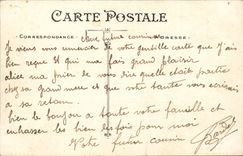 CARTE POSTALE
CORRESPONDANCE
ADRESSE
future cousine
Je viens vous remercier de votre gentille carte que j'ai
bien reçue et qui m'a fait grand plaisir
de vous dire quelle était partie
chez sa grand mère et que tante vous écrirais
a sa retour
bien le bonjour a toute votre famille et
embrasser les bien des fois pour moi
Votre futur cousin